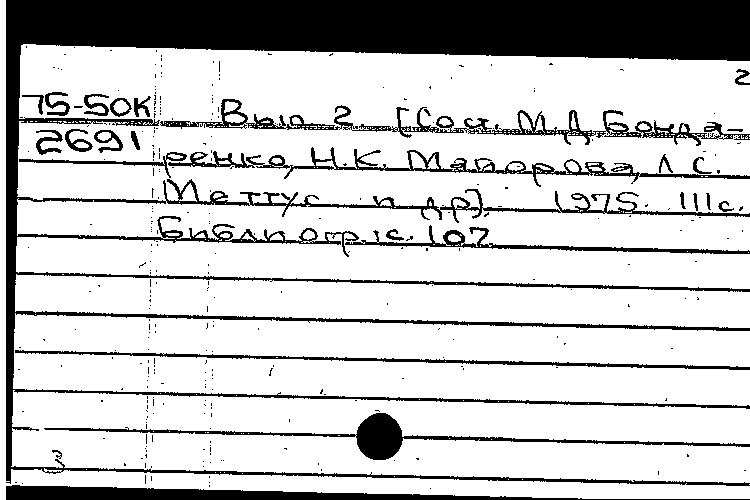 2
75-50К Вып 2. [Сост. М.Д Бонда-
2691
ренко, Н.К. Майорова, Л С.
Меттус и др]. 1975. 111с.
Библиогр.: с. 107
3